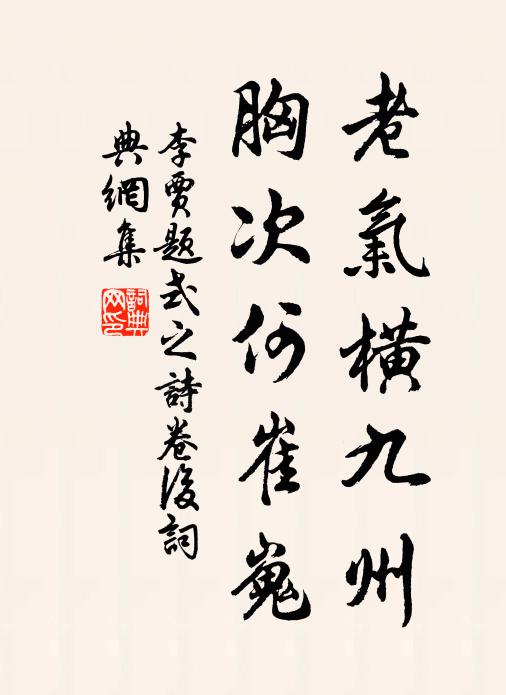 老氣橫九州
胸次何崔嵬
李賈題式之詩卷後詞
典網集
詞典網印